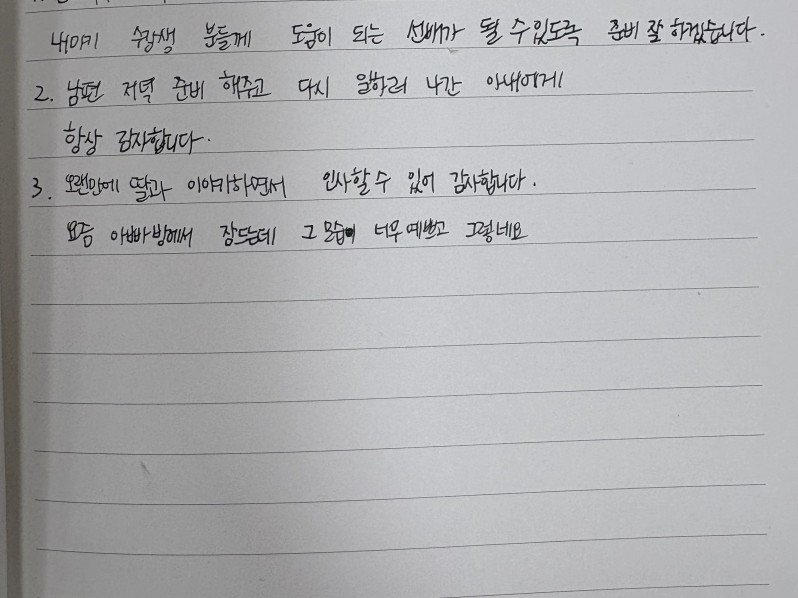 내야기 수강생 분들께 도움이 되는 선배가 될 수 있도록 준비 잘 하겠습니다.
2. 남편 저녁 준비 해주고 다시 일하러 나간 아내에게
항상 감사합니다.
3. 오랜만에 딸과 이야기하면서 인사할 수 있어 감사합니다.
요즘 아빠방에서 잠드는데 그 모습이 너무 예쁘고 그렇네요